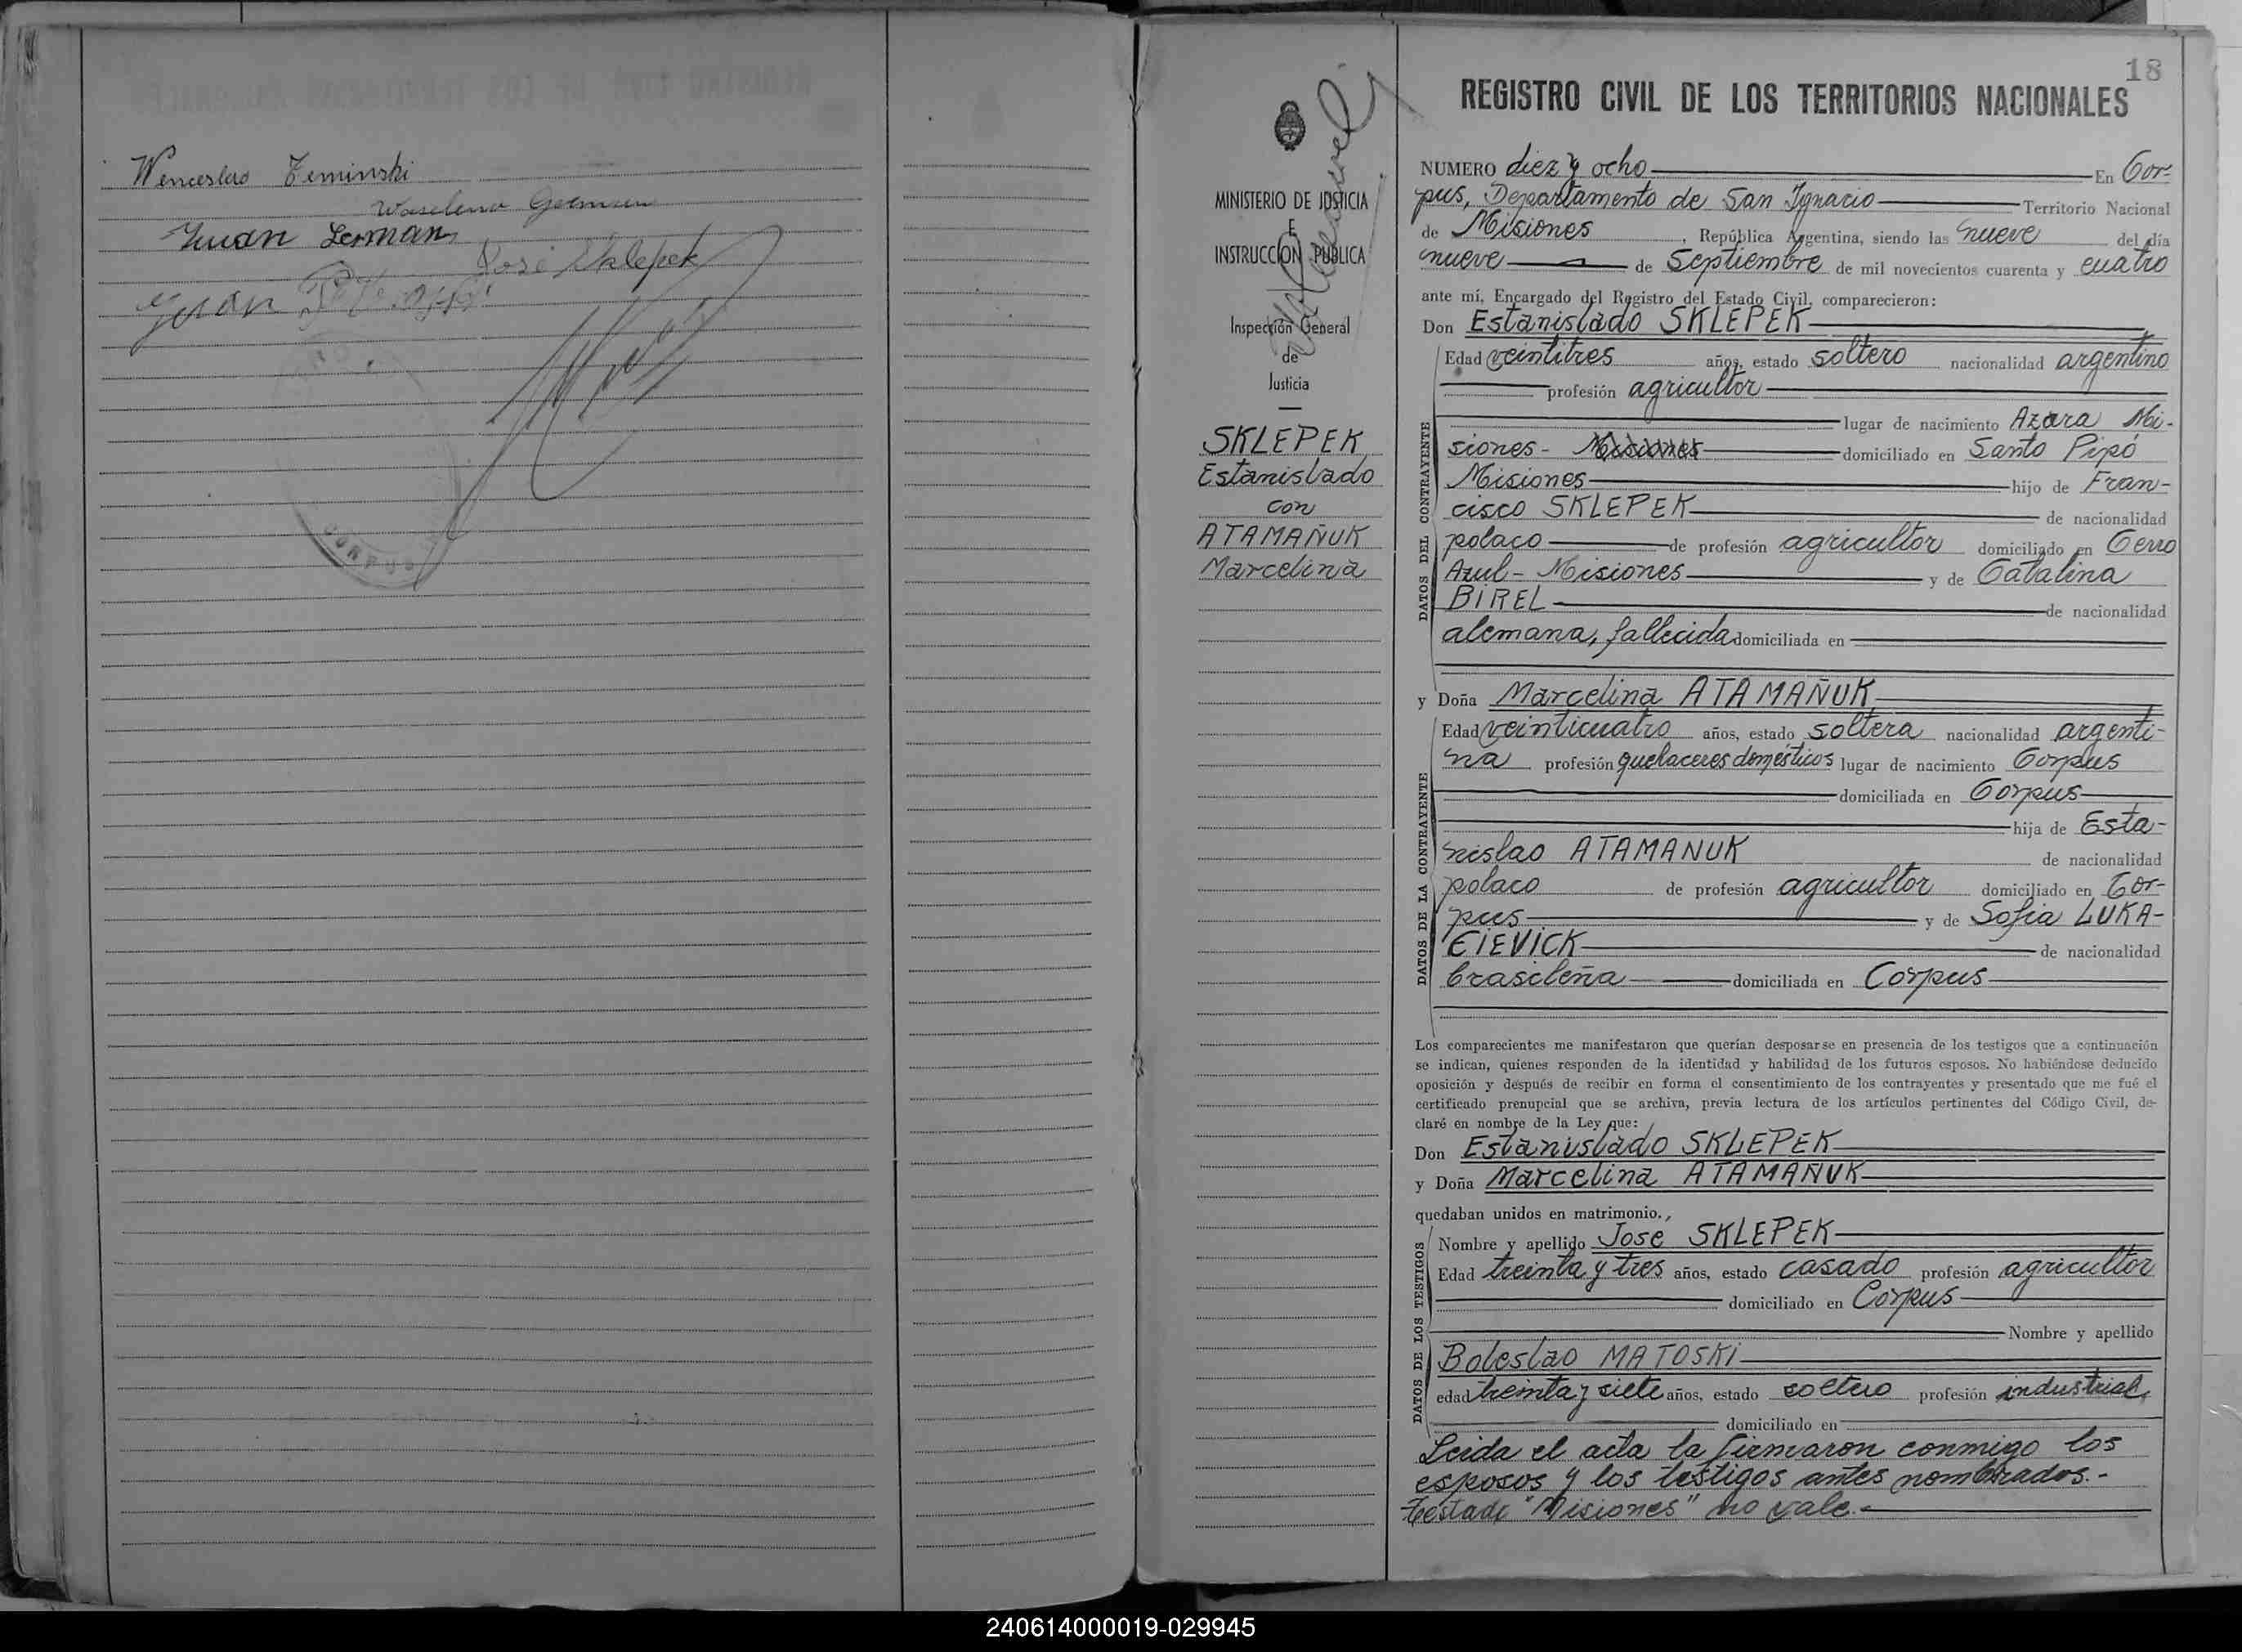 Wenceslao Zeminski
Juan German
José Sklepek
Juan
CORPUS
18
REGISTRO CIVIL DE LOS TERRITORIOS NACIONALES
MINISTERIO DE JUSTICIA
E
INSTRUCCION PUBLICA
Inspección General
de
Justicia
SKLEPEK
Estanislado
con
ATAMAÑUK
Marcelina
NUMERO diez y ocho En Cor-
pus, Departamento de San Ignacio Territorio Nacional
de Misiones, República Argentina, siendo las nueve del día
nueve de Septiembre de mil novecientos cuarenta y cuatro
ante mí, Encargado del Registro del Estado Civil, comparecieron:
Don Estanislado SKLEPEK
DATOS DEL CONTRAYENTE
Edad veintitres años, estado soltero nacionalidad argentino
profesión agricultor
lugar de nacimiento Azara Mi-
siones - Misiones domiciliado en Santo Pipó
Misiones hijo de Fran-
cisco SKLEPEK de nacionalidad
polaco de profesión agricultor domiciliado en Cerro
Azul - Misiones y de Catalina
BIREL de nacionalidad
alemana, fallecida domiciliada en
y Doña Marcelina ATAMAÑUK
DATOS DE LA CONTRAYENTE
Edad veinticuatro años, estado soltera nacionalidad argenti-
na profesión quehaceres domésticos lugar de nacimiento Corpus
domiciliada en Corpus
hija de Esta-
nislao ATAMANUK de nacionalidad
polaco de profesión agricultor domiciliado en Cor-
pus y de Sofia LUKA-
CIEVICK de nacionalidad
brasileña domiciliada en Corpus
Los comparecientes me manifestaron que querían desposarse en presencia de los testigos que a continuación
se indican, quienes responden de la identidad y habilidad de los futuros esposos. No habiéndose deducido
oposición y después de recibir en forma el consentimiento de los contrayentes y presentado que me fué el
certificado prenupcial que se archiva, previa lectura de los artículos pertinentes del Código Civil, de-
claré en nombre de la Ley que:
Don Estanislado SKLEPEK
y Doña Marcelina ATAMAÑUK
quedaban unidos en matrimonio.,
DATOS DE LOS TESTIGOS
Nombre y apellido Jose SKLEPEK
Edad treinta y tres años, estado casado profesión agricultor
domiciliado en Corpus
Nombre y apellido
Boleslao MATOSKI
edad treinta y siete años, estado soltero profesión industrial,
domiciliado en
Leida el acta la firmaron conmigo los
esposos y los testigos antes nombrados.-
Testado "Misiones" no vale.-
240614000019-029945